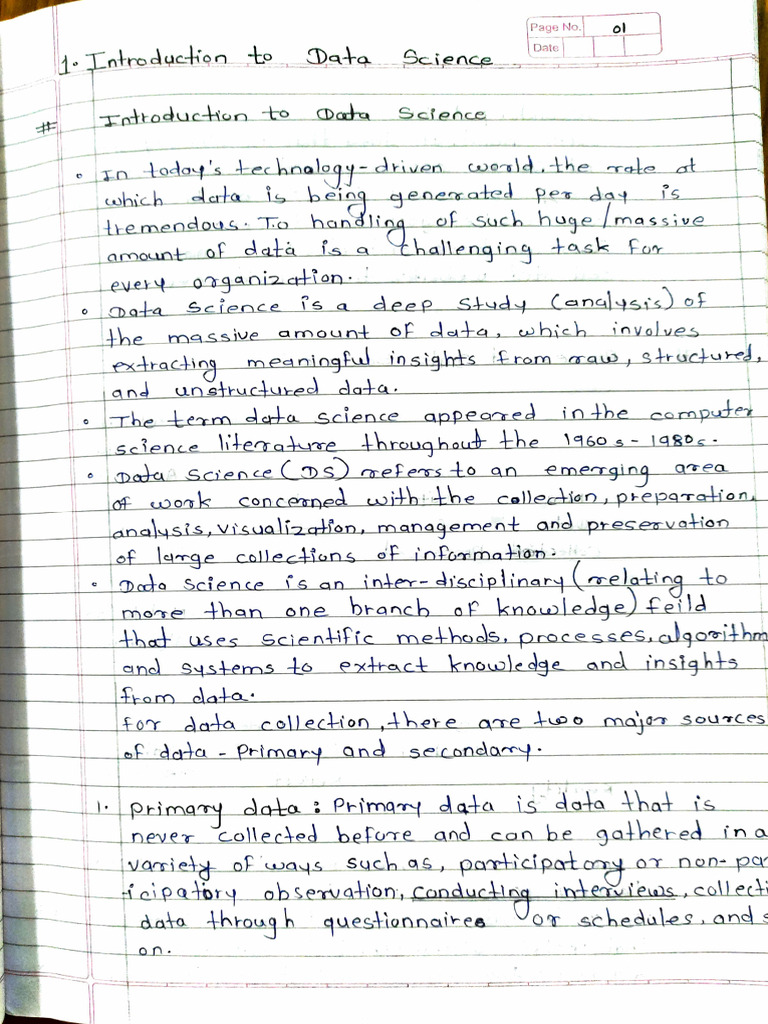 Page No. 01
Date
1. Introduction to Data Science
# Introduction to Data Science
• In today's technology-driven world, the rate at
which data is being generated per day is
tremendous. To handling of such huge/massive
amount of data is a challenging task for
every organization.
• Data Science is a deep study (analysis) of
the massive amount of data, which involves
extracting meaningful insights from raw, structured,
and unstructured data.
• The term data science appeared in the computer
science literature throughout the 1960s-1980s.
• Data Science (DS) refers to an emerging area
of work concerned with the collection, preparation,
analysis, visualization, management and preservation
of large collections of information.
• Data science is an inter-disciplinary (relating to
more than one branch of knowledge) feild
that uses scientific methods, processes, algorithm
and systems to extract knowledge and insights
from data.
for data collection, there are two major sources
of data - primary and secondary.
1. primary data : Primary data is data that is
never collected before and can be gathered in a
variety of ways such as, participatory or non-par
icipatory observation, conducting interviews, collecti
data through questionnaires or schedules, and s
on.